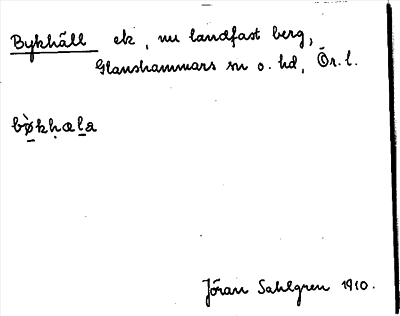 Bykhäll ek, nu landfast berg,
Glanshammars sn o. hd, Ör. l.
bø̀kḥæla
Jöran Sahlgren 1910.